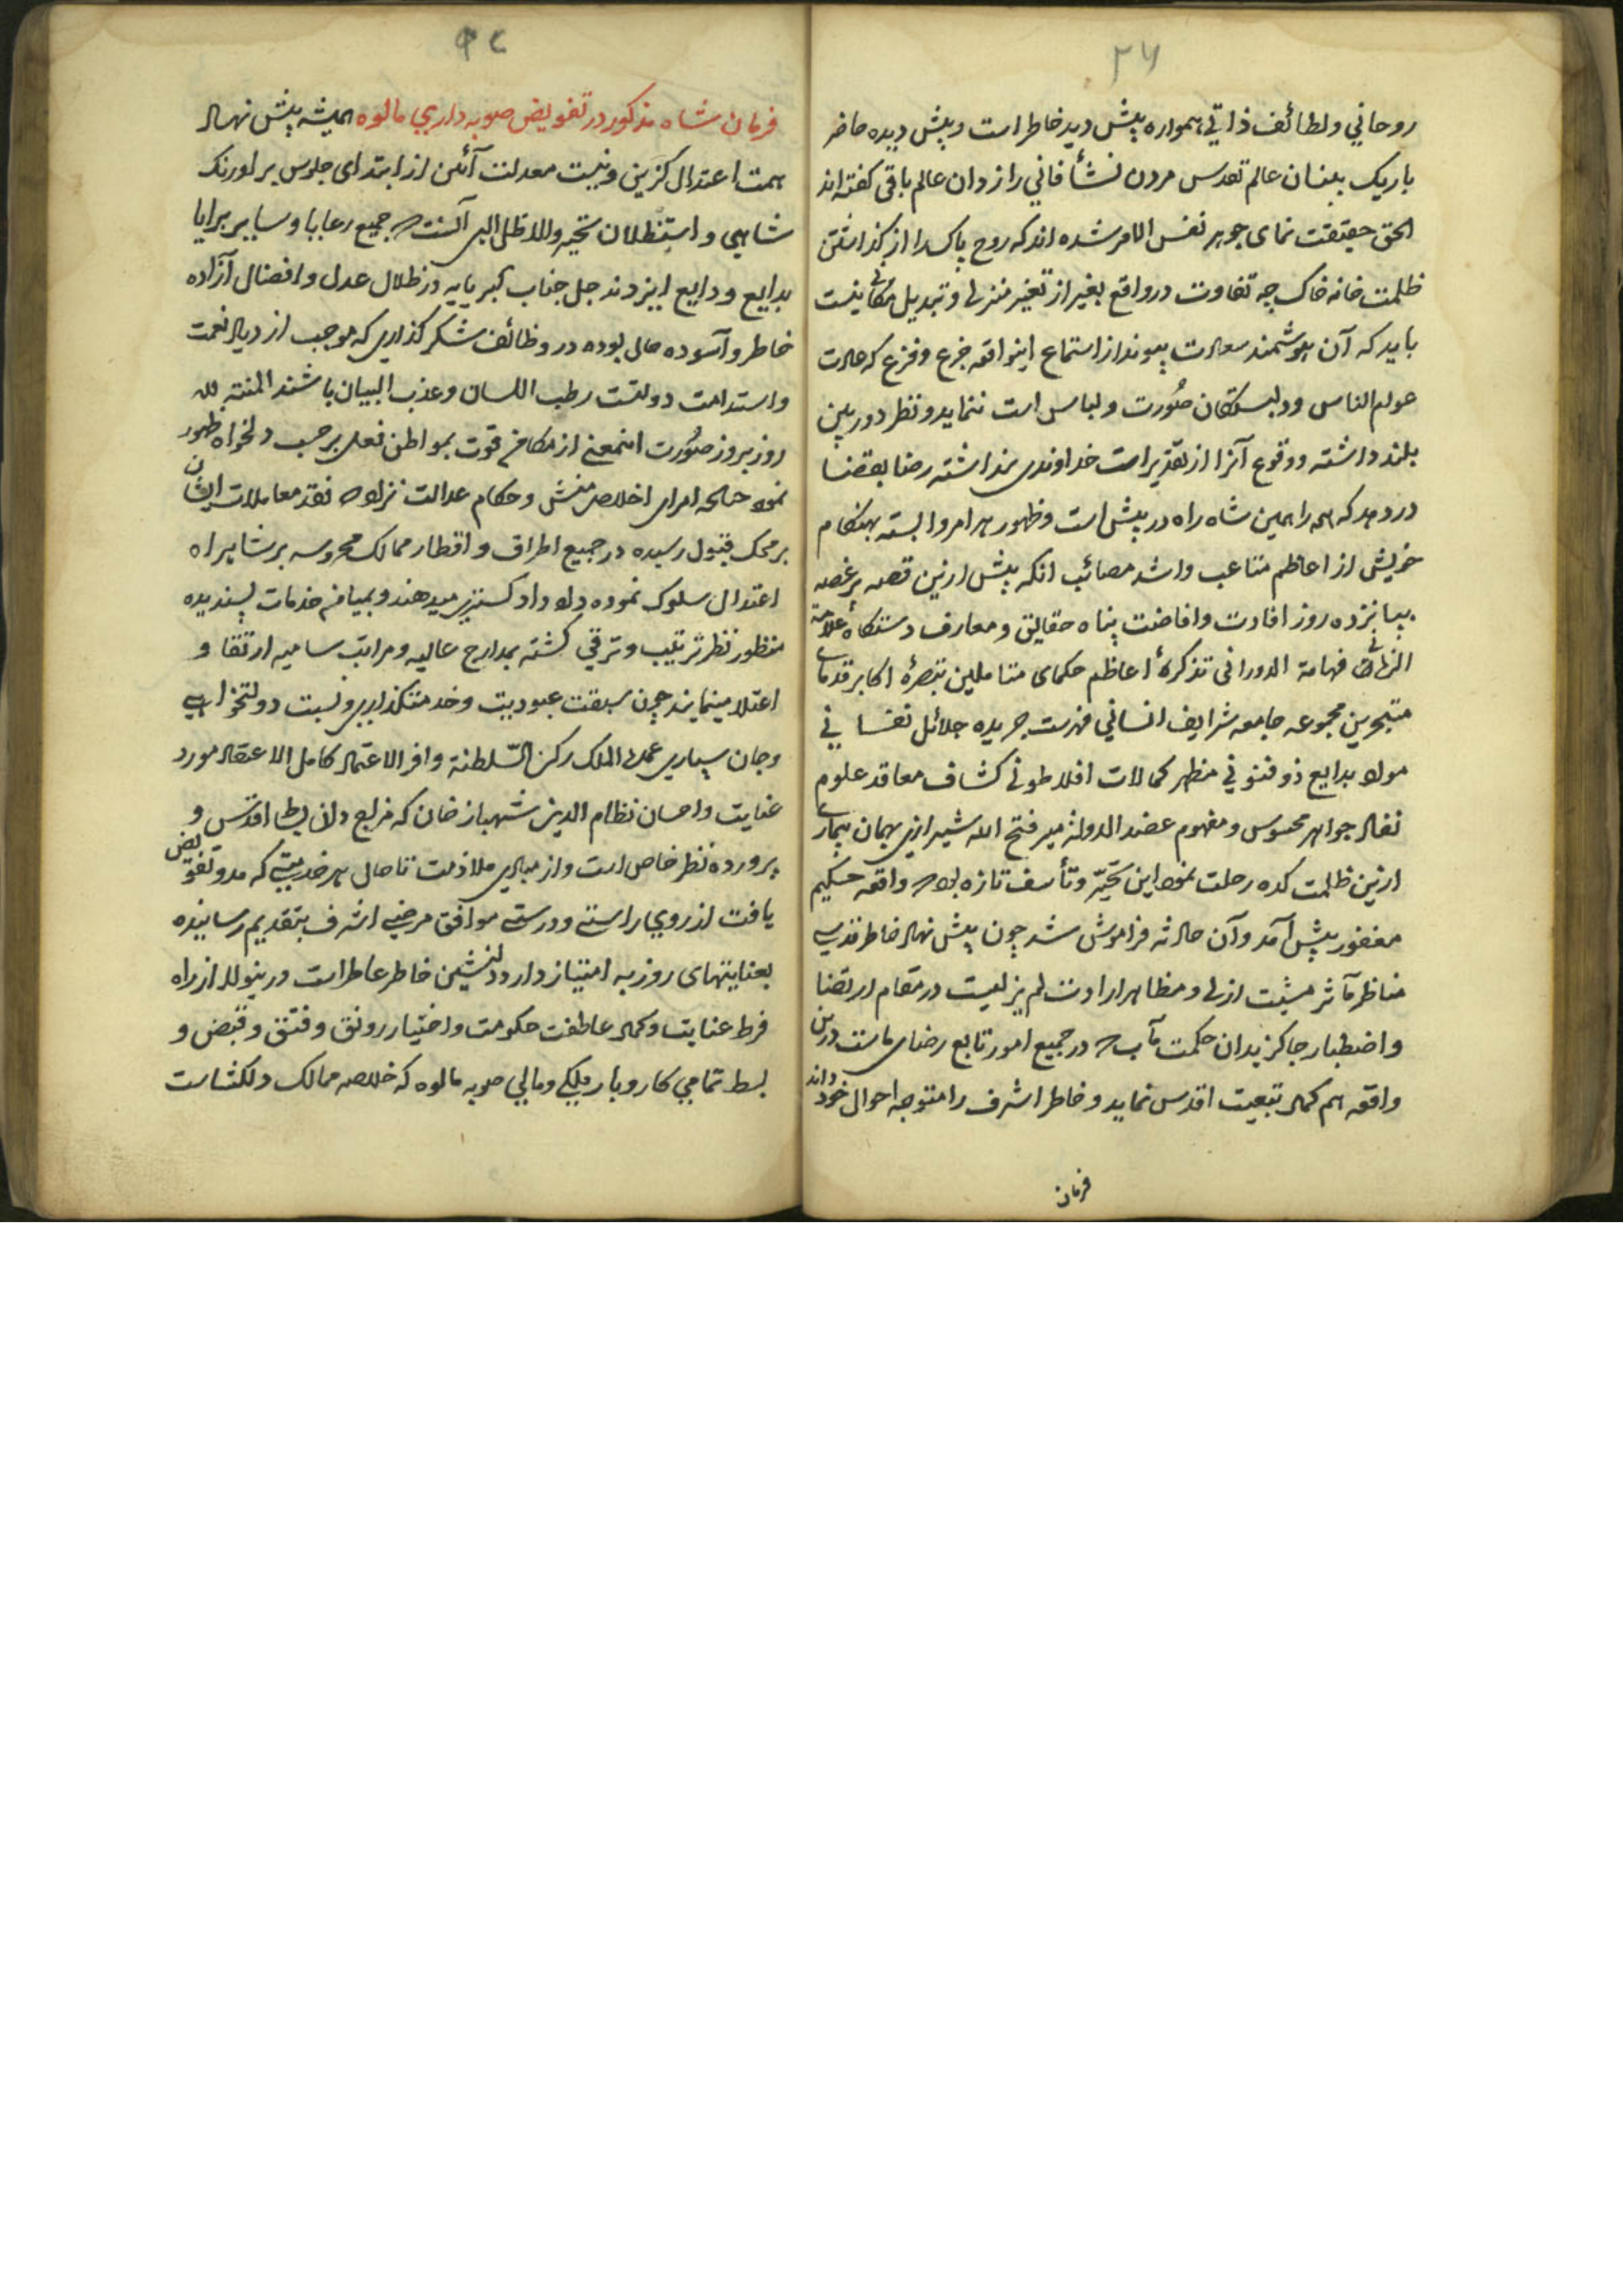 ۲۷
روحاني ولطائف ذاتي همواره پیش دید خاطر است وپیش دیده حاضر
باریک بینان عالم تقدس مردن نشأ فاني را زدان عالم باقی کفته اند
الحق حقیقت نمای جوهر نفس الامر شده اند که روح پاک را از کذاشتن
ظلمت خانه خاک چه تفاوت در واقع بغیر از تغیر منزلی و تبدیل مکانی نیست
باید که آن هوشمند سعادت پیوند از استماع اینواقعه جزع وفزع که عادت
عوام الناس ودلبستکان صُورت ولباس است ننماید ونظر دوربین
بلند داشته ووقوع آنرا از تقدیرات خداوندی پنداشته رضا بقضا
در دهد که همه را همین شاه راه در پیش است وظهور هر امر وابسته بهنکام
خویش از اعاظم متاعب واشد مصائب انکه پیش ازین قصه پر غصه
بپانزده روز افادت وافاضت پناه حقایق ومعارف دستکاه علامة
الزمانی فهامة الدورانی تذکرهٔ اعاظم حکمای متاملین تبصرهٔ اکابر قدمای
متبحرین مجموعه جامعه شرایف انسانی فهرست جریده جلائل نفسانی
مواد بدایع ذوفنونی مظهر کمالات افلاطونی کشاف معاقد علوم
نقاد جواهر محسوس ومفهوم عضد الدولة میر فتح الله شیرازی بهمان بیماری
ازین ظلمت کده رحلت نمود این تحیّر وتأسف تازه بود که واقعه حکیم
مغفور پیش آمد وآن حادثه فراموش شد چون پیش نهاد خاطر قدسی
مناظر مآثر مشیت ازلی ومظاهر ارادت لم یزلیست در مقام ارتضا
واصطبار جا کزیدان حکمت مآب که در جمیع امور تابع رضای ماست درین
واقعه هم کمال تبعیت اقدس نماید وخاطر اشرف را متوجه احوال خود داند
فرمان
فرمان شاه مذکور در تفویض صوبه داري مالوه همیشه پیش نهاد
همت اعتدال کزین ونیت معدلت آئین از ابتدای جلوس بر اورنک
شاهي و استظلال الهی آنست که جمیع رعایا وسایر برایا
بدایع ودایع ایزدند جل جناب کبریایه در ظلال عدل وافضال آزاده
خاطر وآسوده حال بوده در وظائف شکر کذاری که موجب ازدیاد نعمت
واستدامت دولتست رطب اللسان وعذب البیان باشند المنته لله
روز بروز صُورت اینمعنی از مکامن قوت بمواطن فعل بر حسب دلخواه ظهور
نمود چنانچه امرای اخلاص منش وحکام عدالت نژاد که نقد معاملات ایشان
بر محک قبول رسیده در جمیع اطراف و اقطار ممالک محروسه بر شاهراه
اعتدال سلوک نموده داد داد کستری میدهند وبمیامن خدمات پسندیده
منظور نظر تربیت وترقي کشته بمدارج عالیه ومراتب سامیه ارتقا و
اعتلا مینمایند چون سبقت عبودیت وخدمتکذاری ونسبت دولتخواهي
وجان سپاری عمدة الملک رکن السّلطنة وافر الاعتماد کامل الاعتقاد مورد
عنایت واحسان نظام الدین شهباز خان که مزاج دان بساط اقدس و
پرورده نظر خاص است واز مبادی ملازمت تا حال هر خدمتی که بدو تفویض
یافت از روی راستی ودرستی موافق مرضی اشرف بتقدیم رسانیده
بعنایتهای روز به امتیاز دارد دلنشین خاطر عاطر است درینولا از راه
فرط عنایت وکمال عاطفت حکومت واختیار رونق وفتق وقبض و
بسط تمامي کار وبار ملکي ومالي صوبه مالوه که خلاصه ممالک دلکشاست